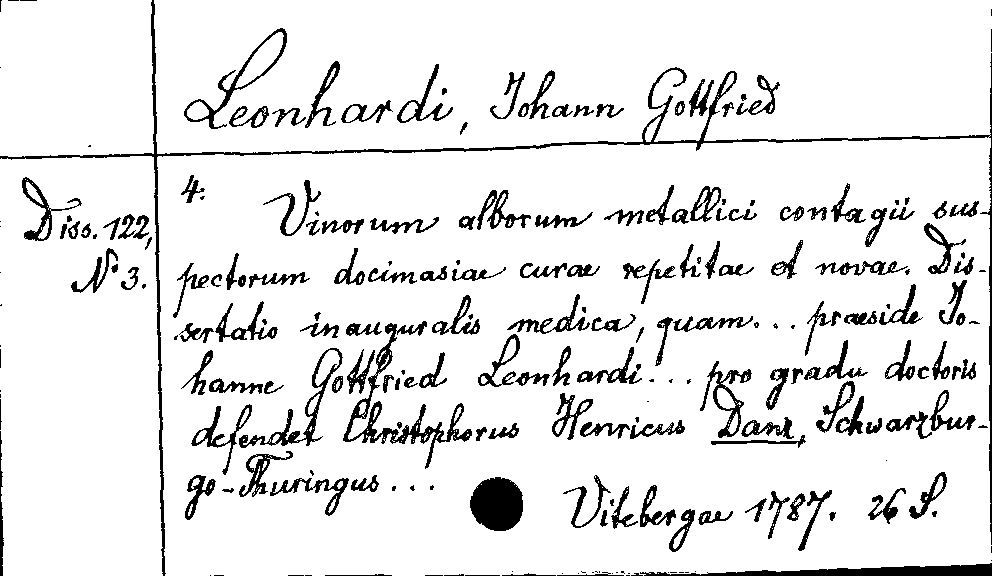 Leonhardi, Johann Gottfried
4.
Diss. 122,
No 3.
Vinorum alborum metallici contagii sus-
pectorum docimasiae curae repetitae et novae. Dis-
sertatio inauguralis medica, quam... praeside Jo-
hanne Gottfried Leonhardi... pro gradu doctoris
defendet Christophorus Henricus Danz, Schwarzbur-
go-Thuringus...
Vitebergae 1787. 26 S.